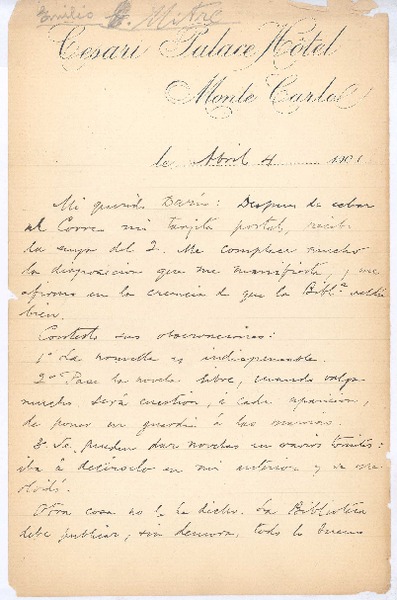 Emilio E. Mitre
Cesari Palace Hôtel
Monte Carlo
le Abril 4 1901
Mi querido Darío: Despues de echar
al Correo mi tarjeta postal, recibo
la suya del 2. Me complace mucho
la disposicion que me manifiesta, y me
afirmo en la creencia de que la Bibl.ª saldrá
bien.
Contesto sus observaciones:
1º La novella es indispensable.
2º Pase la novela libre, cuando valga
mucho. Será cuestion, á cada aparicion,
de poner en guardia á las mamas.
3º Se pueden dar novelas en varios tomitos:
iba á decírselo en mi anterior y se me
olvidó.
Otra cosa no le he dicho. La Biblioteca
debe publicar, sin demora, todo lo bueno